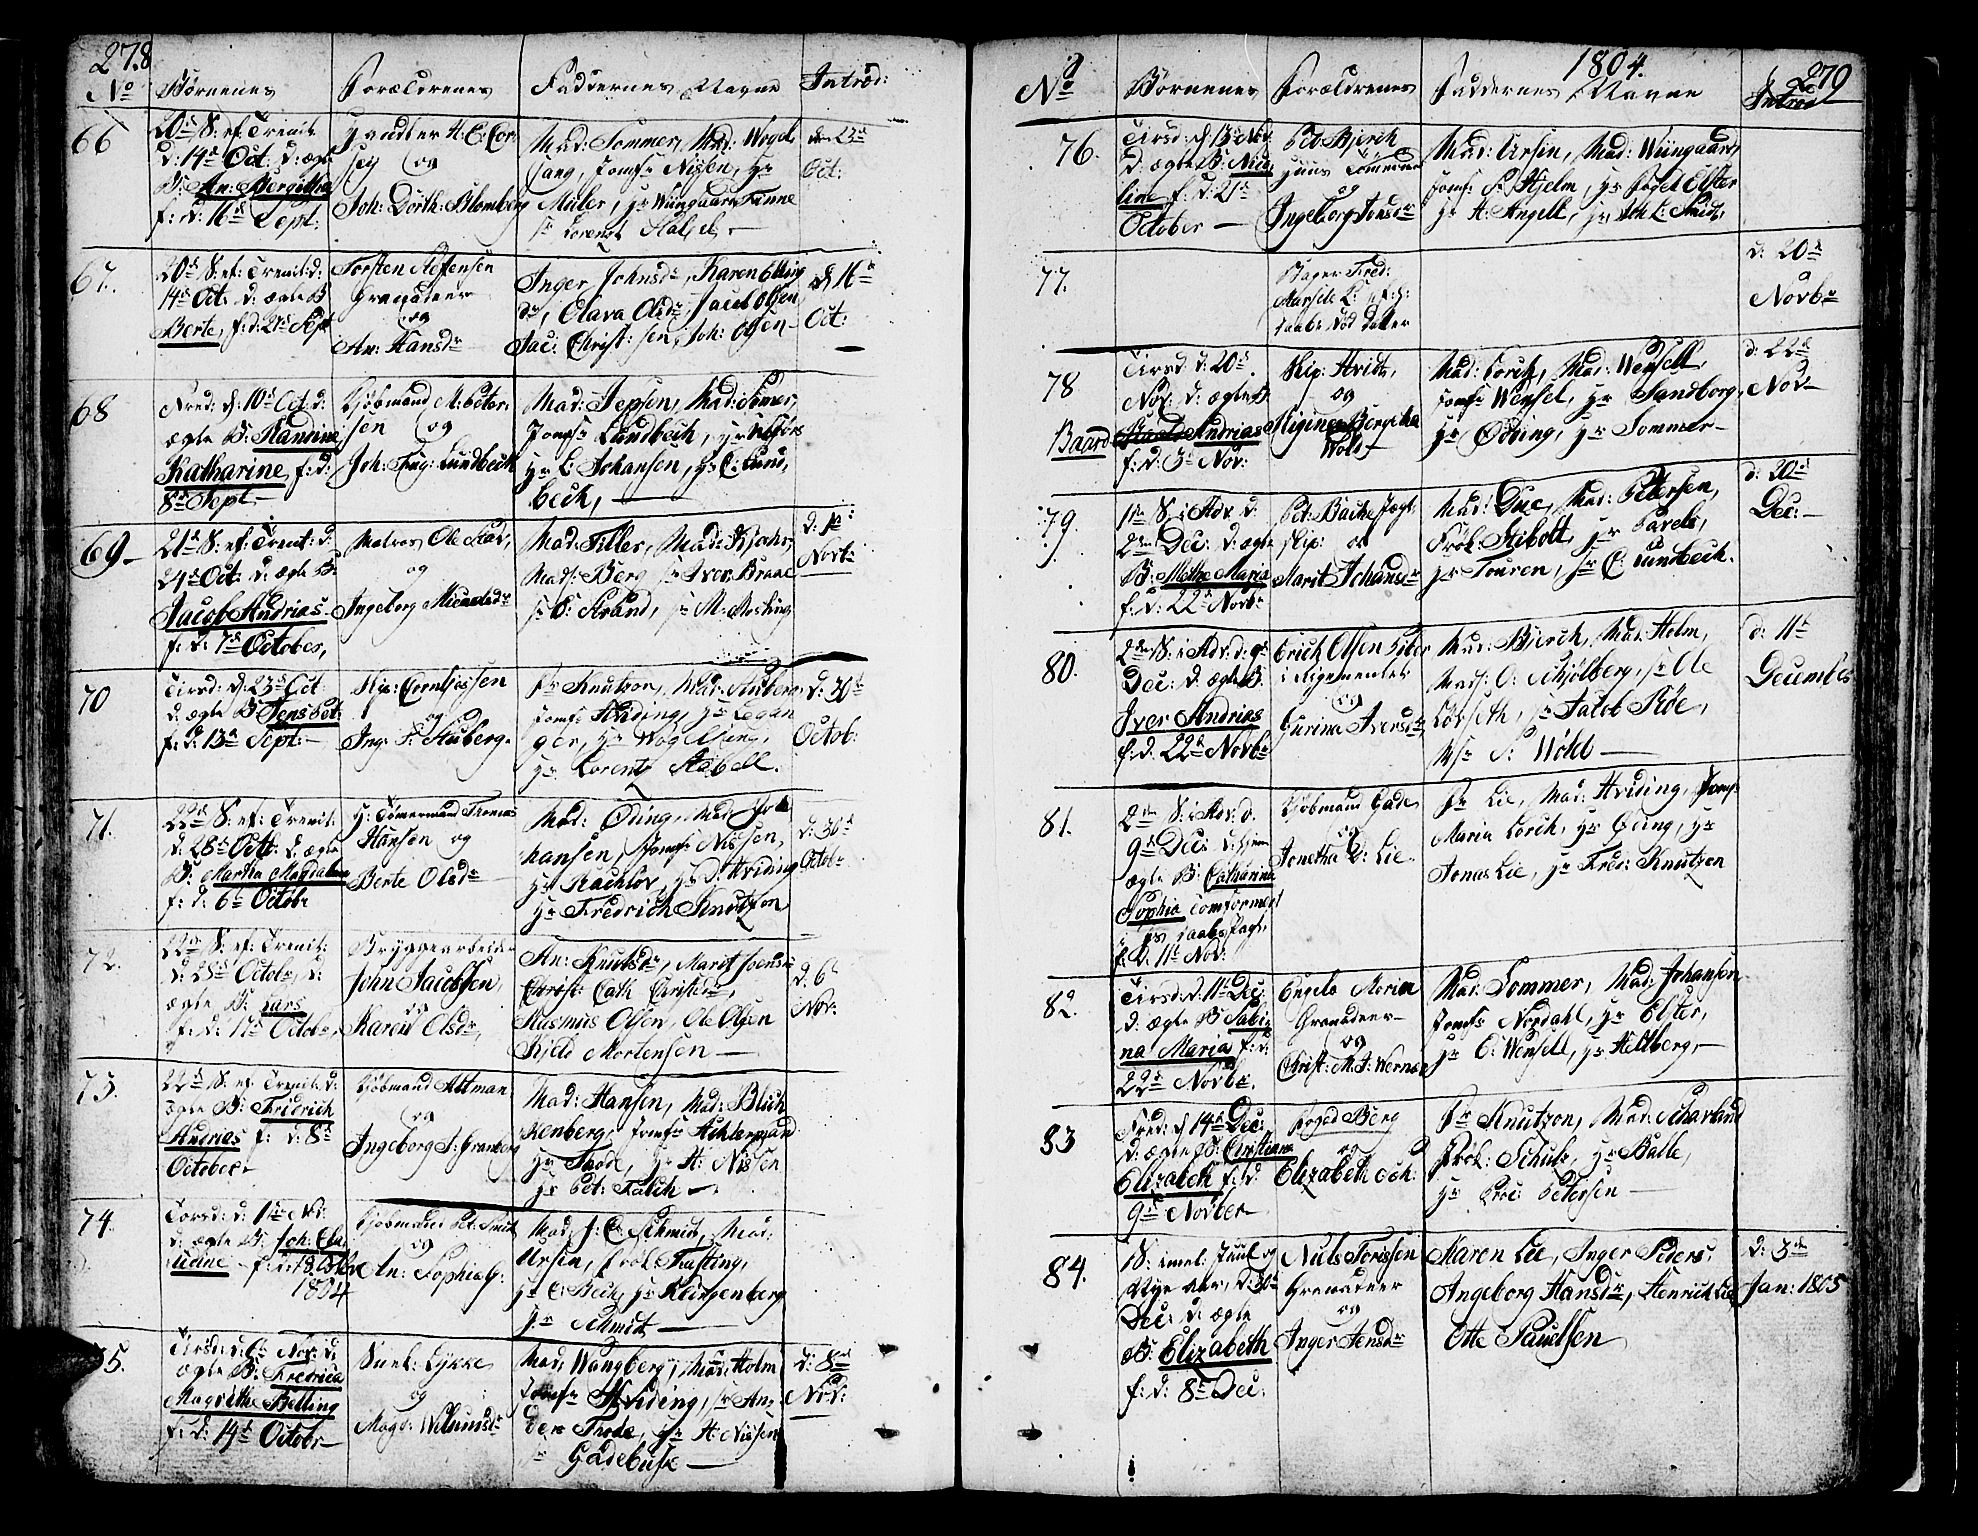 278
No Børnenes Forældrenes Faddernes Navne Introd:
66
20de S: ef: Trinit:
d: 14de Oct: d: ægte
B: An: Bergitha
f: d: 16de Sept:
Handler H: C: Cor-
sey og
Joh: Dorth: Blomberg
Mad: Sommer, Mad: Vogel-
sang, Jomfr Nissen, Hr
Müller, Hr Wiingaard
d: 23de
Oct:
67.
20de S: ef: Trinit: d:
14de Oct. d: ægte B
Berte, f: d: 21de Sept
Torsten Steffensen
Granadeer
og
An: Hansdr
Inger Johnsdr, Karen Elling
dr, Olava Olsdr, Jacob Olsen,
Jac: Christ:sen, Joh: Olsen
d 16de
Oct:
68
Fred: d: 10de Oct. d:
ægte B: Randine
Katharine, f: d:
8de Sept
Kjøbmand M: Peter-
sen og
Joh: Lundbech
Mad: Jepsen, Mad: Somer,
Jomfr Lundbech, Hr
Hr L: Johansen, Hr C: Lund,
bech,
69
21de S: ef: Trinit: d:
24de Oct: d: ægte B:
Jacob Andrias
f: d: 7de October,
Matros Ole
og
Ingeborg
Mad: Filler, Mad:
Mads: Berg Sr Iver Braae
Sr O: Strand, Sr M:
d: 1ste
Novbr
70
Tirsd: d: 23de Oct:
d: ægte B: Jens Pet:
f: d: 13de Sept:
Skip: Corneliussen
og
Ing: S: Stuberg
Fr Knutzon, Mad:
Jomfr Hviding, Hr Legan
ger, Hr
Hr Lorentz Stabell.
d: 30te
Octob:
71.
22de S: ef: Trinit:
d: 28de Octb: d: ægte
B: Martha Magdalena
f: d: 6te Octobr
H: Tømermand Thomas
Hansen og
Berte Olsdr
Mad: Øding, Mad: Jo-
hansen, Jomfr Nissen,
Hr Rachløv, Hr D: Hviding
Hr Fredrich Knutzon
d: 30te
Octobr
72.
22de S: ef: Trinit:
d: 28de Octobr, d:
ægte B: Lars
f: d: 17de Octobr,
Bryggearbeider
John Jacobsen,
og
Karen Olsdr,
An: Knutsdr, Marit Joensdr
Christ: Cath Christsdr,
Rasmus Olsen, Ole Olsen
Kield Mortensen
d. 6te
Nov:
73.
22de S: ef: Trinit: d:
ægte B: Fridrich
Andrias f: d: 8de
October
Kjøbmand Altman
og
Ingeborg S: Granberg
Mad: Hansen, Mad: Blich
kenberg, Jomfr Achterman
Hr Thode, Hr H: Nissen
Hr Pet: Falch
74.
Torsd: d: 1ste Nov:
d: ægte B: Joh: Clau-
dine f: d: 18 Octbr
1804
Kjøbmand Pet: Smit
og
An: Sophia G:
Mad: J: C: Schmidt, Mad:
Ursin, Frøk: Fasting,
Hr C: Bech, Hr Klingenberg
Hr Schmidt
75.
Tirsd: d: 6te Nov: d:
ægte B: Fredrica
Magrethe Belling
f: d: 14de Octobr
Lykke
og
Magd:
Mad: Wangberg, Mad: Holm
Jomfr Hviding, Sr An-
ders Thode, Hr H: Nissen
Sr Gadebusk
d: 8de
Nov:
1804. 279
No Børnenes Forældrenes Faddernes Navne Introd
76.
Tirsd: d 13de Nov
d: ægte B: Nico
line f: d: 21de
October
Pet: Bjerch
Huus Tømmermand
og
Ingeborg Jonsdr
Mad: Ursin, Mad: Wiingaard,
Jomfr S: Hjelm, Hr Foged Elster
Hr H: Angell, Hr Joh L: Smidt,
77.
Bager Fred:
Marsele K:
Død datter
d: 20de
Novbr
78
Tirsd d: 20de
Nov: d: ægte B:
Baard Andrias
f: d: 3de Nov:
Skip: Hvidt,
og
Bergitha
Wold
Mad: Lorch, Mad: Wensell,
Jomfr Wensel, Hr Sandborg,
Hr Øding, Hr Sommer
d: 22de
Nov
79.
1ste S: i Adv d:
2den Dec: d: ægte
B: Mette Maria
f: d: 22de Novbr
Pet: Bache Jægt-
skip: og
Marit Johansdr
Mad: Due, Mad: Petersen,
Frøk: Stibolt, Hr Pavels,
Hr Touren, Hr C: Lundbech.
d: 20de
Dec:
80.
2den S: i Adv: d: 9de
Dec: d: ægte B:
Iver Andrias
f: d: 22de Novbr
Erich Olsen
i Rigementet
og
Gurina Iversdr
Mad: Bierch, Mad: Holm,
Mads: O: Schjølberg, Sr Ole
Lorseth, Sr Jakob Røe,
Sr S: Wold
d: 11te
December
81.
2den S: i Adv: d.
9de Dec:
ægte B: Catharina
Sophia
f: d: 11te Nov:
Kjøbmand Gade
og
Jonetha C: Lie
Fr Lie, Mad: Hviding, Jomf:
Maria Lorch, Hr Øding, Hr
Jonas Lie, Hr Fred: Knutzon
82.
Tirsd: d: 11te Dec:
d: ægte B Sabi-
na Maria f: d:
22de Novbr.
Engelb Morian
Granadeer
og
Christ: M: Werner
Mad: Sommer, Mad: Johansen
Jomfr Nordahl, Hr Elster,
Hr C: Wensell, Hr Heltberg,
83
Fred: d 14de Dec:
d: ægte B: Christiana
Elizabeth f: d.
9de Novber
Foged Berg
og
Elizabeth Sch:
Fr Knutzon, Mad: Scharland
Frøk: Schulz, Hr Balle,
Hr Proc: Petersen
84.
S: imel: Juul og
Nye Aar, d: 30te
Dec: d: ægte
B: Elizabeth
f: d: 8de Dec:
Niels Torissen
Grenadeer
og
Inger Jensdr
Maren Lie, Inger Peders,
Ingeborg Hansdr, Henrich Lie
Otte Paulsen
d: 3de
Jan: 1805